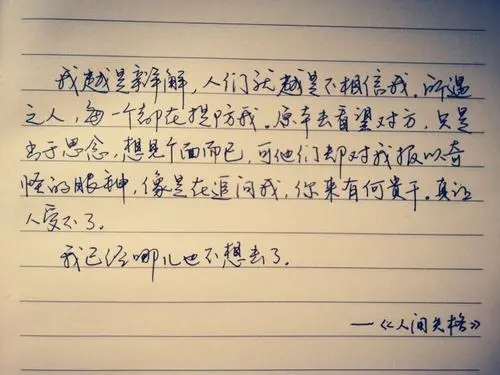 我越是辩解，人们就越是不相信我。所遇
之人，每一个都在提防我。原本去看望对方，只是
出于思念，想见个面而已，可他们却对我报以奇
怪的眼神，像是在追问我，你来有何贵干。真让
人受不了。
我已经哪儿也不想去了。
—《人间失格》